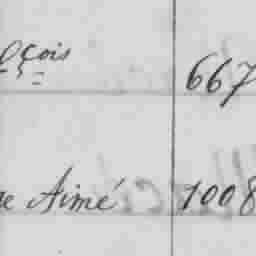 çois 667
Aimé 1008